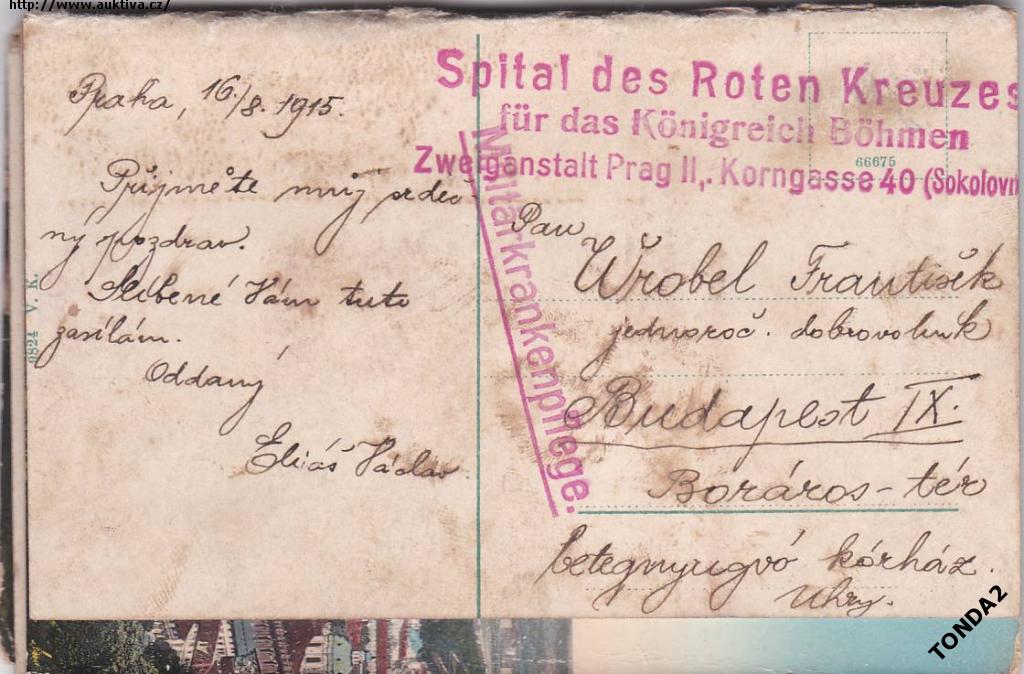 http://www.auktiva.cz/
Praha, 16./8. 1915.
Přijměte můj srdeč-
ný pozdrav.
Slíbené Vám tuto
zasílám.
Oddaný
Eliáš Václav.
9824 V. K.
Spital des Roten Kreuzes
für das Königreich Böhmen
Zweiganstalt Prag II., Korngasse 40 (Sokolovn
Militärkrankenpflege.
66675
Pan
Wrobel František
jednoroč. dobrovolník
Budapest IX.
Boráros-tér
betegnyugvó kórház.
Uhry.
TONDA2